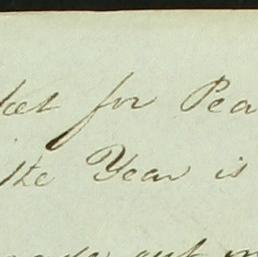 ket for Pea
the Year is
out m